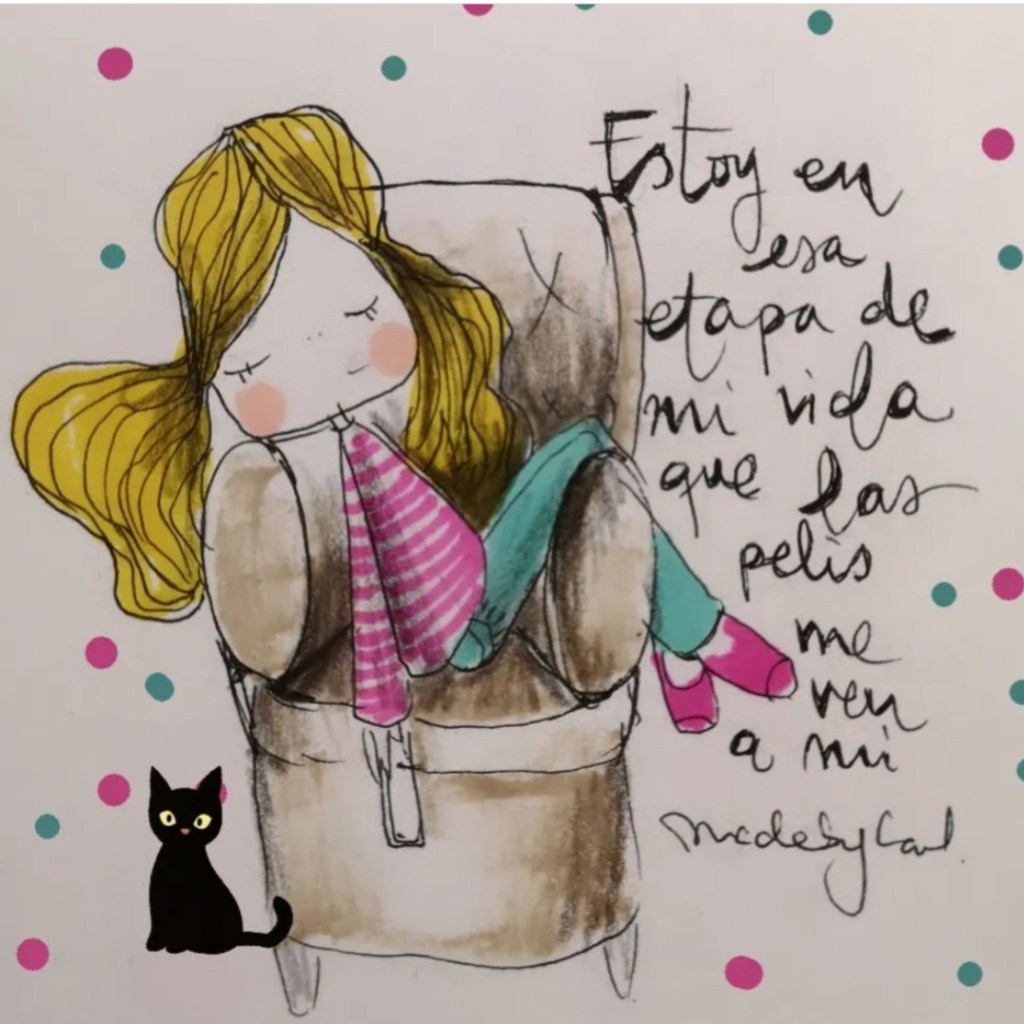 Estoy en
esa
etapa de
mi vida
que las
pelis
me
ven
a mi
madebyCarol.